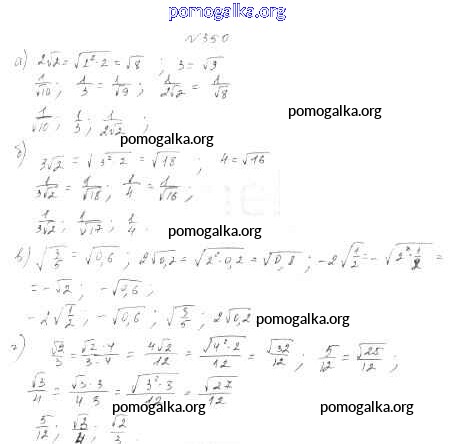 pomogalka.org
№ 350
а) 2√2 = √(2²·2) = √8 ; 3 = √9
1/√10 ; 1/3 = 1/√9 ; 1/2√2 = 1/√8
1/√10 ; 1/3 ; 1/2√2 ;
pomogalka.org
pomogalka.org
б) 3√2 = √(3²·2) = √18 ; 4 = √16
1/3√2 = 1/√18 ; 1/4 = 1/√16 ;
1/3√2 ; 1/√17 ; 1/4 .
pomogalka.org
в) √(3/5) = √0,6 ; 2√0,2 = √(2²·0,2) = √0,8 ; -2√(1/2) = -√(2²·1/2) =
= -√2 ; -√0,6 ;
-2√(1/2) ; -√0,6 ; √(3/5) ; 2√0,2
pomogalka.org
г) √2/3 = √2·4/3·4 = 4√2/12 = √(4²·2)/12 = √32/12 ; 5/12 = √25/12 ;
√3/4 = √3·3/4·3 = √(3²·3)/12 = √27/12
pomogalka.org
pomogalka.org
5/12 ; √3/4 ; √2/3 .